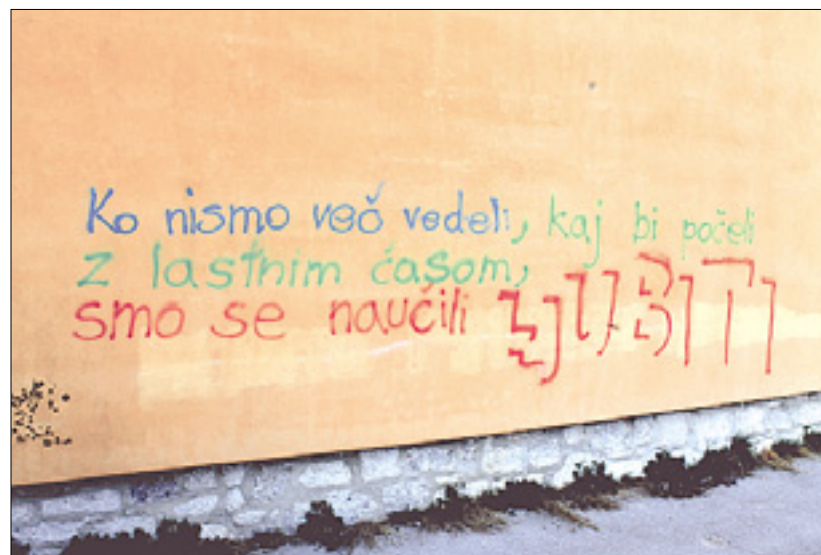 Ko nismo več vedeli, kaj bi počeli
z lastnim časom,
smo se naučili